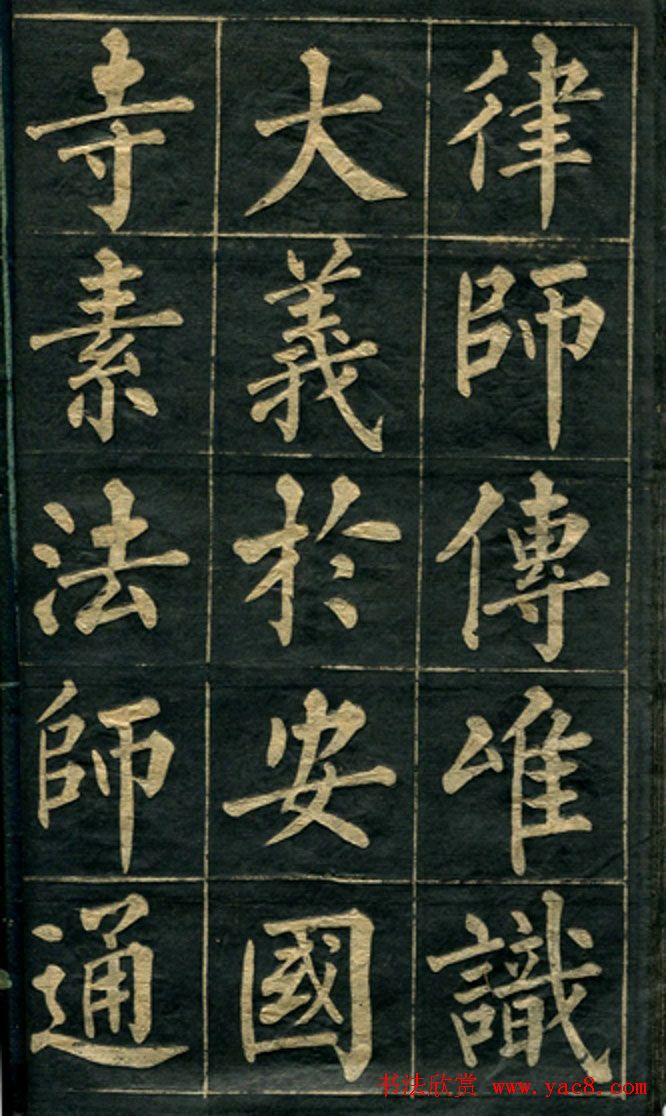 律師傳唯識
大義於安國
寺素法師通
书法欣赏 www.yac8.com